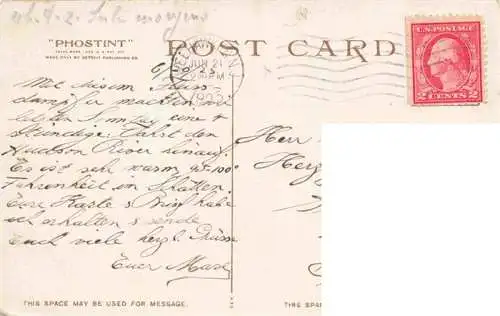 "PHOSTINT"
POST CARD
MADE ONLY BY DETROIT PUBLISHING CO.
JUN 21
1923
U.S. POSTAGE
2 CENTS 2
6/
Mit diesem Fluss-
dampfer machten wir
letzten Sonntag eine
stündige Fahrt den
Hudson River hinauf.
Es ist sehr warm 95-100°
Fahrenheit im Schatten.
Eure Karte & Brief habe
ich erhalten & sende
Euch viele herzl. Grüsse
Euer
Herr
Herz
THIS SPACE MAY BE USED FOR MESSAGE.
THIS SPACE